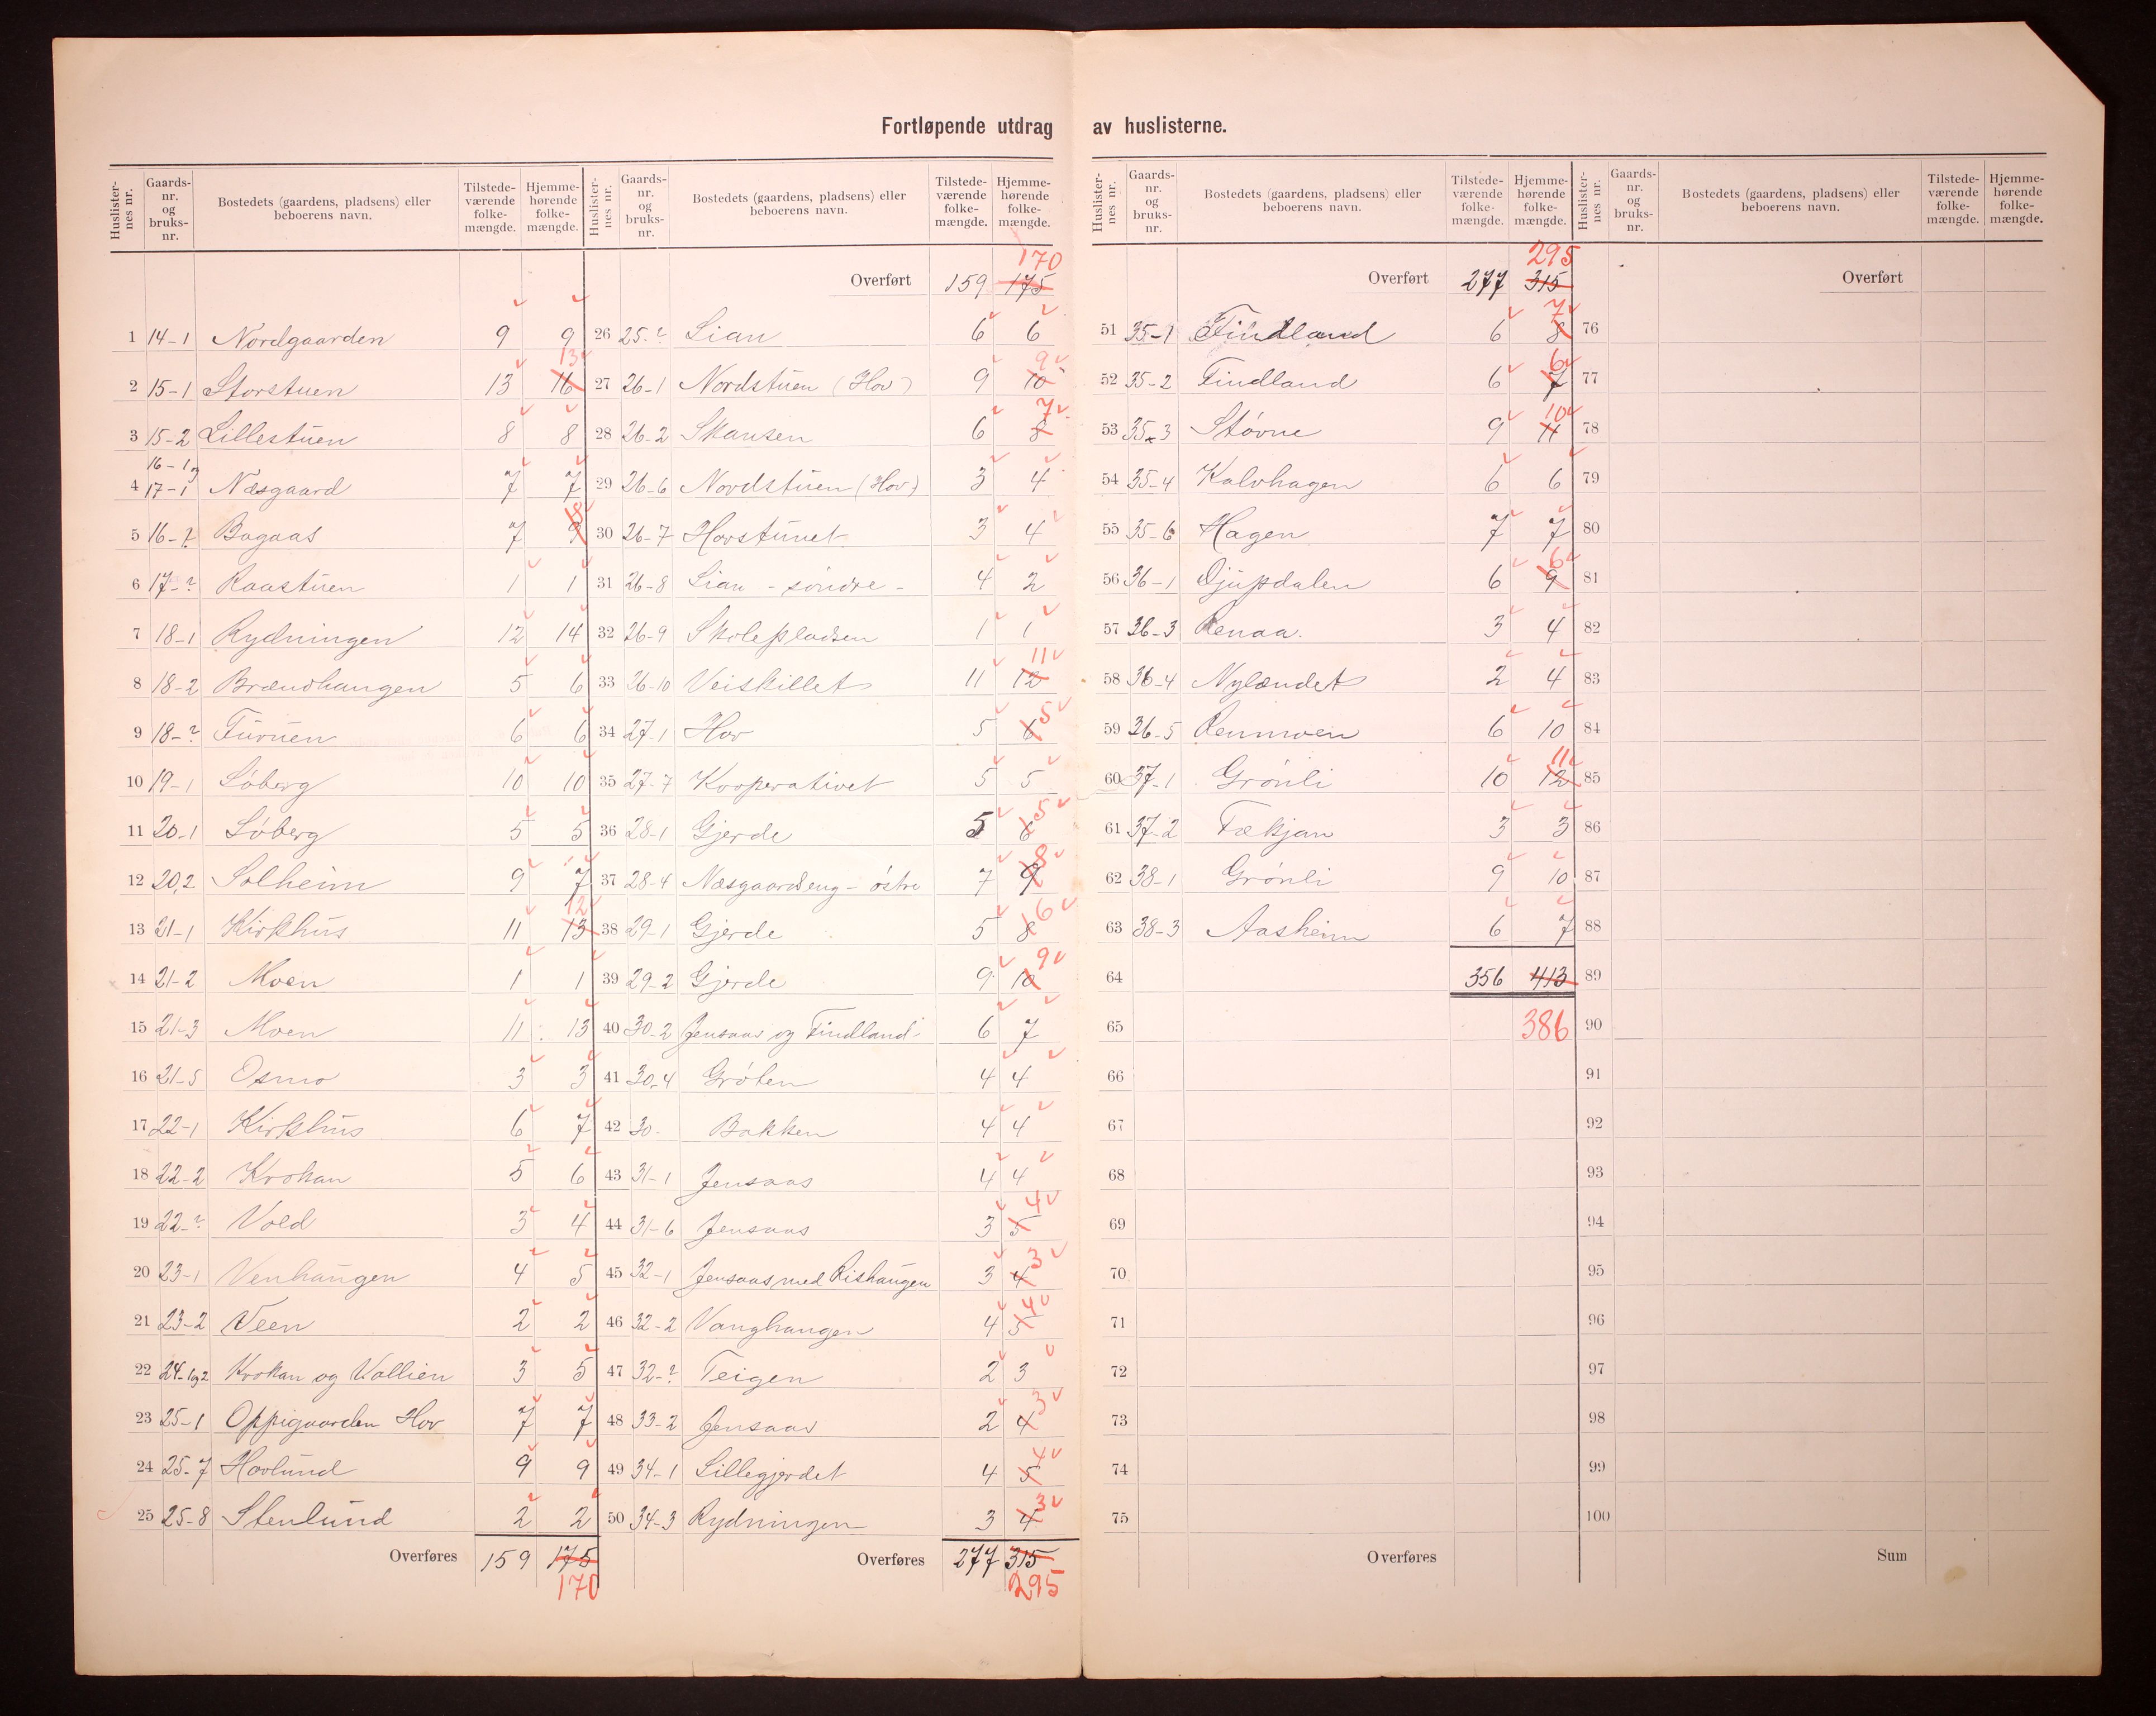 Fortløpende utdrag av huslisterne.
Huslisternes nr. Gaards-nr. og bruks-nr. Bostedets (gaardens, pladsens) eller beboerens navn. Tilstedeværende folkemængde. Hjemmehørende folkemængde.
1 14-1 Nordgaarden 9 9
2 15-1 Storstuen 13 16 13
3 15-2 Lillestuen 8 8
4 16-1 og 17-1 Næsgaard 7 7
5 16-? Bagaas 7 9 8
6 17-? Raastuen 1 1
7 18-1 Rydningen 12 14
8 18-2 Brændhaugen 5 6
9 18-? Furuen 6 6
10 19-1 Løberg 10 10
11 20-1 Løberg 5 5
12 20,2 Solheim 9 7
13 21-1 Kirkhus 11 13 12
14 21-2 Moen 1 1
15 21-3 Moen 11 13
16 21-5 Osmo 3 3
17 22-1 Kirkhus 6 7
18 22-2 Krokan 5 6
19 22-? Vold 3 4
20 23-1 Venhaugen 4 5
21 23-2 Veen 2 2
22 24-1og2 Krokan og Vollien 3 5
23 25-1 Oppigaarden Hov 7 7
24 25-7 Hovlund 9 9
25 25-8 Stenlund 2 2
Overføres 159 175
170
Huslisternes nr. Gaards-nr. og bruks-nr. Bostedets (gaardens, pladsens) eller beboerens navn. Tilstedeværende folkemængde. Hjemmehørende folkemængde.
170
Overført 159 175
26 25-? Lian 6 6
27 26-1 Nordstuen (Hov) 9 10 9
28 26-2 Skansen 6 8 7
29 26-6 Nordstuen (Hov) 3 4
30 26-7 Hovstunet 3 4
31 26-8 Lian - søndre - 4 2
32 26-9 Skolepladsen 1 1
33 26-10 Veiskillet 11 12 11
34 27-1 Hov 5 6 5
35 27-7 Kooperativet 5 5
36 28-1 Gjerde 5 6 5
37 28-4 Næsgaardseng - østre 7 9 8
38 29-1 Gjerde 5 8 6
39 29-2 Gjerde 9 10 9
40 30-2 Jensaas og Findland 6 7
41 30-4 Grøten 4 4
42 30- Bakken 4 4
43 31-1 Jensaas 4 4
44 31-6 Jensaas 3 5 4
45 32-1 Jensaas med Rishaugen 3 4 3
46 32-2 Vanghaugen 4 5 4
47 32-? Teigen 2 3
48 33-2 Jensaas 2 4 3
49 34-1 Lillegjerdet 4 5 4
50 34-3 Rydningen 3 4 3
Overføres 277 315
295
Huslisternes nr. Gaards-nr. og bruks-nr. Bostedets (gaardens, pladsens) eller beboerens navn. Tilstedeværende folkemængde. Hjemmehørende folkemængde.
295
Overført 277 315
51 35-1 Findland 6 8 7
52 35-2 Findland 6 7 6
53 35-3 Støvne 9 11 10
54 35-4 Kalvhagen 6 6
55 35-6 Hagen 7 7
56 36-1 Djupdalen 6 9 6
57 36-3 Renaa. 3 4
58 36-4 Nylændet 2 4
59 36-5 Renmoen 6 10
60 37-1 Grønli 10 12 11
61 37-2 Tækjan 3 3
62 38-1 Grønli 9 10
63 38-3 Aasheim 6 7
64 356 413
65 386
66
67
68
69
70
71
72
73
74
75
Overføres
Huslisternes nr. Gaards-nr. og bruks-nr. Bostedets (gaardens, pladsens) eller beboerens navn. Tilstedeværende folkemængde. Hjemmehørende folkemængde.
Overført
76
77
78
79
80
81
82
83
84
85
86
87
88
89
90
91
92
93
94
95
96
97
98
99
100
Sum